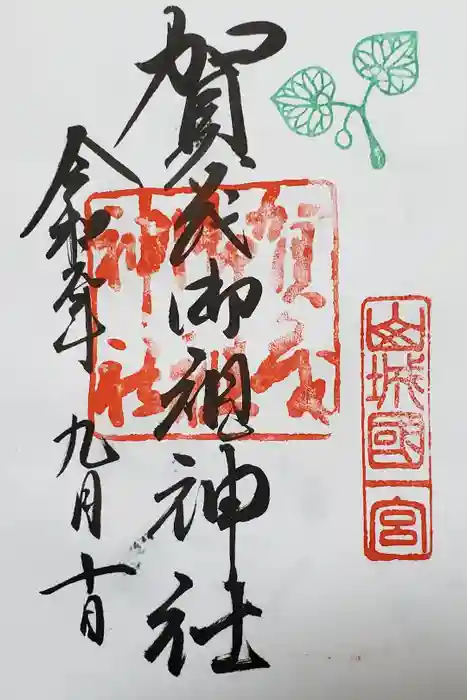 山城國一宮
賀茂御祖神社
賀茂御祖神社
令和元年 九月十日